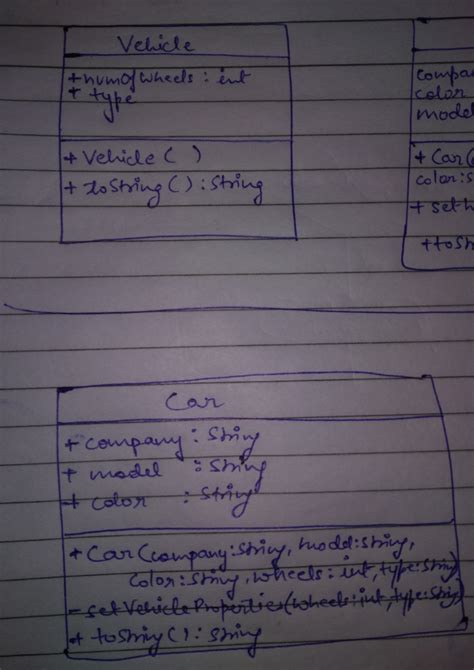 Vehicle
+numofwheels: int
+ type
+ Vehicle( )
+ toString( ): String
compa
color
model
+ Car(
color:s
+ set
+tost
Car
+ company: String
+ model : String
+ color : String
+ Car(company:String, model:String,
color:String, wheels: int, type:String)
- setVehicleProperties(wheels:int, type:String)
+ toString( ): String